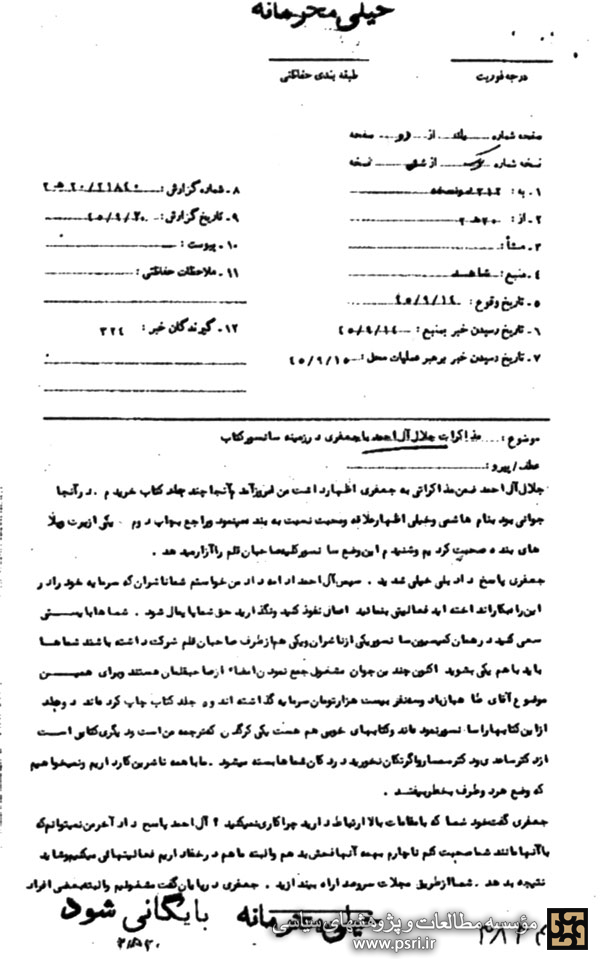 خیلی محرمانه
درجه فوریت
طبقه بندی حفاظتی
صفحه شماره از دو صفحه
نسخه شماره یک از شش نسخه
۱ـ به : ۳۱۲
۲ـ از : ۲۰هـ۲
۳ـ منشأ :
۴ـ منبع : شاهد
۵ـ تاریخ وقوع : ۴۵/۹/۱۴
۶ـ تاریخ رسیدن خبر بمنبع : ۴۵/۹/۱۴
۷ـ تاریخ رسیدن خبر برهبر عملیات محل : ۴۵/۹/۱۵
۸ـ شماره گزارش : ۲۱۸۴۰/۲۰هـ۲
۹ـ تاریخ گزارش : ۴۵/۹/۲۰
۱۰ـ پیوست :
۱۱ـ ملاحظات حفاظتی :
۱۲ـ گیرندگان خبر : ۳۲۴
موضوع : مذاکرات جلال آل احمد با جعفری در زمینه سانسور کتاب
عطف / پیرو :
جلال آل احمد ضمن مذاکراتی به جعفری اظهار داشت من امروز آمدم آنجا چند جلد کتاب خریدم . در آنجا
جوانی بود بنام هاشمی وخیلی اظهار علاقه ومحبت نسبت به بنده مینمود وراجع بچاپ دوم یکی از
های بنده صحبت کردیم وشنیدم این وضع سانسور کلیه صاحبان قلم را آزار میدهد .
جعفری پاسخ داد بلی خیلی شدید . سپس آل احمد ادامه داد من خواستم شما ناشران که سرمایه خود را در
این راه بکار انداخته اید فعالیتی بنمائید اعمال نفوذ کنید ونگذارید حق شما پایمال شود . شماها بایستی
سعی کنید در همان کمیسیون سانسور یکی از ناشران ویکی هم از طرف صاحبان قلم شرکت داشته باشند شماها
باید باهم یکی بشوید اکنون چندین جوان مشغول جمع نمودن امضاء از صاحبقلمان هستند وبرای همین
موضوع آقای طاهباز با دوسه نفر بیست هزار تومان سرمایه گذاشته اند و جلد کتاب چاپ کرده اند دوجلد
از این کتابها را سانسور نموده اند وکتابهای خوبی هم هست یکی کرگدن که ترجمه من است ودیگری کتابی است
از دکتر ساعدی ودکتر میشود . ما با همه ناشرین کار داریم ونمیخواهیم
که وضع هر دو طرف بخطر بیفتد .
جعفری گفت خود شما که با مقامات بالا ارتباط دارید چرا کاری نمیکنید ؟ آل احمد پاسخ داد آخر من نمیتوانم که
با آنها مانند شما صحبت کنم ناچارم بهمه آنها فحش بدهم والبته ما هم در خفا داریم فعالیتهائی میکنیم وشاید
نتیجه بدهد . شما از طریق مجلات سروصدا راه بیندازید . جعفری در پایان گفت مشغولیم والبته بعضی افراد
خیلی محرمانه
بایگانی شود
مؤسسه مطالعات و پژوهشهای سیاسی
www.psri.ir